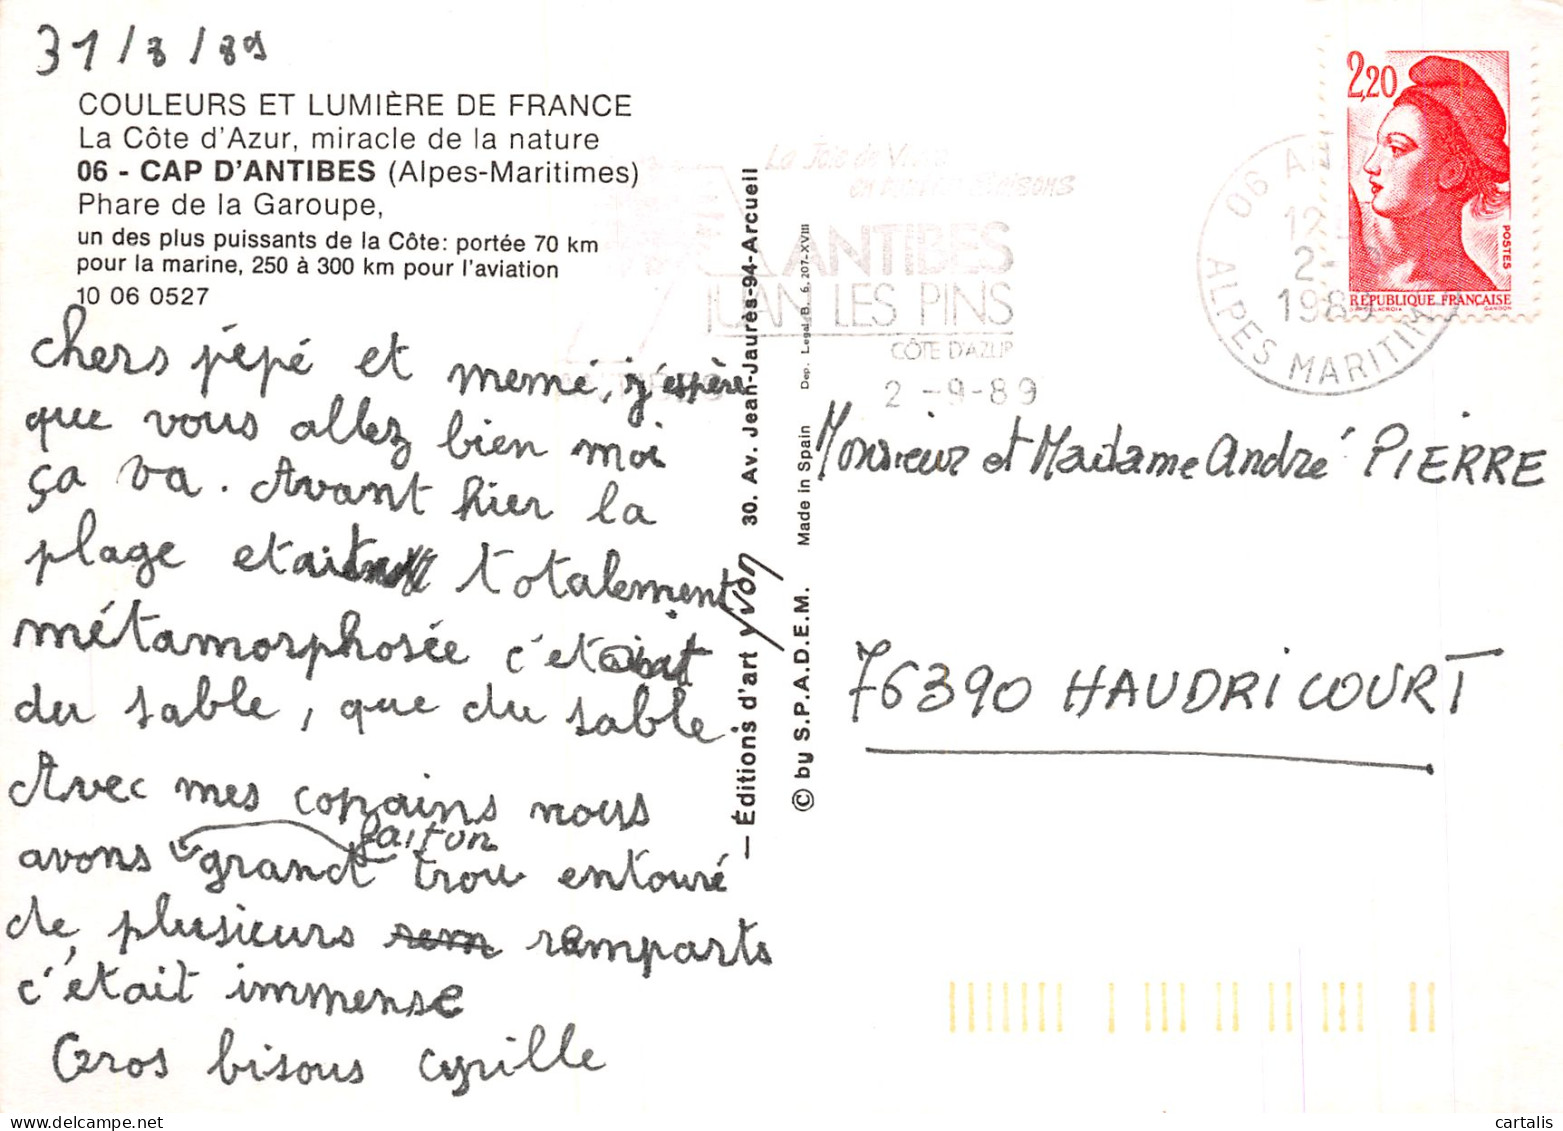 31/8/89
COULEURS ET LUMIÈRE DE FRANCE
La Côte d'Azur, miracle de la nature
06 - CAP D'ANTIBES (Alpes-Maritimes)
Phare de la Garoupe,
un des plus puissants de la Côte: portée 70 km
pour la marine, 250 à 300 km pour l'aviation
10 06 0527
chers pépé et memé, j'espère
que vous allez bien moi
ça va. Avant hier la
plage etait totalement
métamorphosée c'etait
du sable, que du sable.
Avec mes copains nous
avons grand trou entouré
fait un
de plusieurs remparts
c'était immense
Gros bisous cyrille
— Éditions d'art yvon 30. Av. Jean-Jaurès-94-Arcueil
© by S.P.A.D.E.M. Made in Spain Dep. Legal B. 6.207-XVIII
La Joie de Vivre
en toutes saisons
ANTIBES
JUAN LES PINS
CÔTE D'AZUR
2 -9-89
06
ALPES MARITIM
2-
198
2,20
POSTES
RÉPUBLIQUE FRANÇAISE
Monsieur et Madame André PIERRE
76390 HAUDRICOURT
cartalis